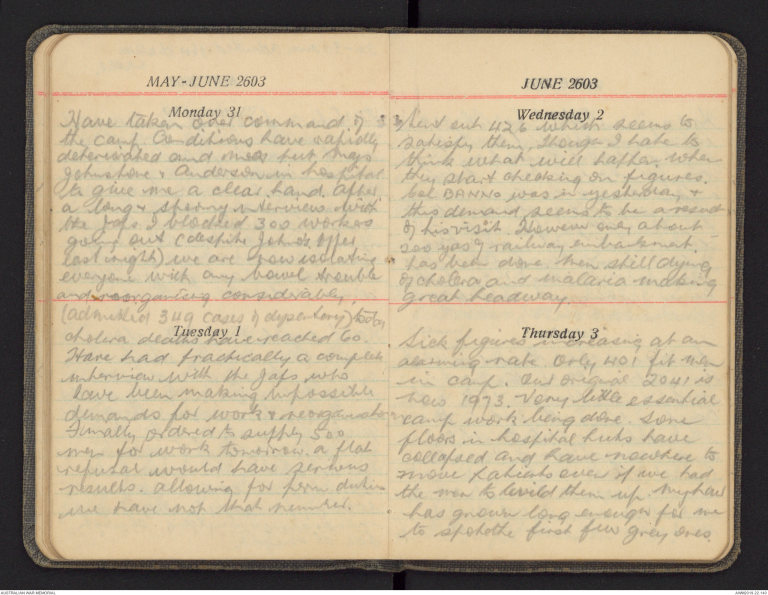 MAY - JUNE 2603
Monday 31
Have taken over command of
the camp. Conditions have rapidly
deteriorated and
Johnstone & Anderson in hospital
to give me a clear hand. After
a long & stormy interview with
the Japs I blocked 300 workers
going out (despite John's offer
last night) we are now isolating
everyone with any bowel trouble
and reorganising considerably.
(admitted 349 cases of dysentery) today
Tuesday 1
cholera deaths have reached 60.
Have had practically a complete
interview with the Japs who
have been making impossible
demands for work & reorganisation
Finally ordered to supply 500
men for work tomorrow. a flat
refusal would have serious
results. allowing for perm duties
we have not that number.
JUNE 2603
Wednesday 2
Sent out 426 which seems to
satisfy them, though I hate to
think what will happen when
they start checking on figures.
Col BANNO was in yesterday &
this demand seems to be a result
of his visit. However only about
200 yds of railway embankment
has been done. Men still dying
of cholera and malaria making
great headway.
Thursday 3
Sick figures increasing at an
alarming rate. Only 401 fit men
in camp. Our original 2041 is
now 1973. Very little essential
camp work being done. Some
floors in hospital huts have
collapsed and have nowhere to
move patients even if we had
the men to build them up. My hair
has grown long enough for me
to spot the first few grey ones.
AUSTRALIAN WAR MEMORIAL